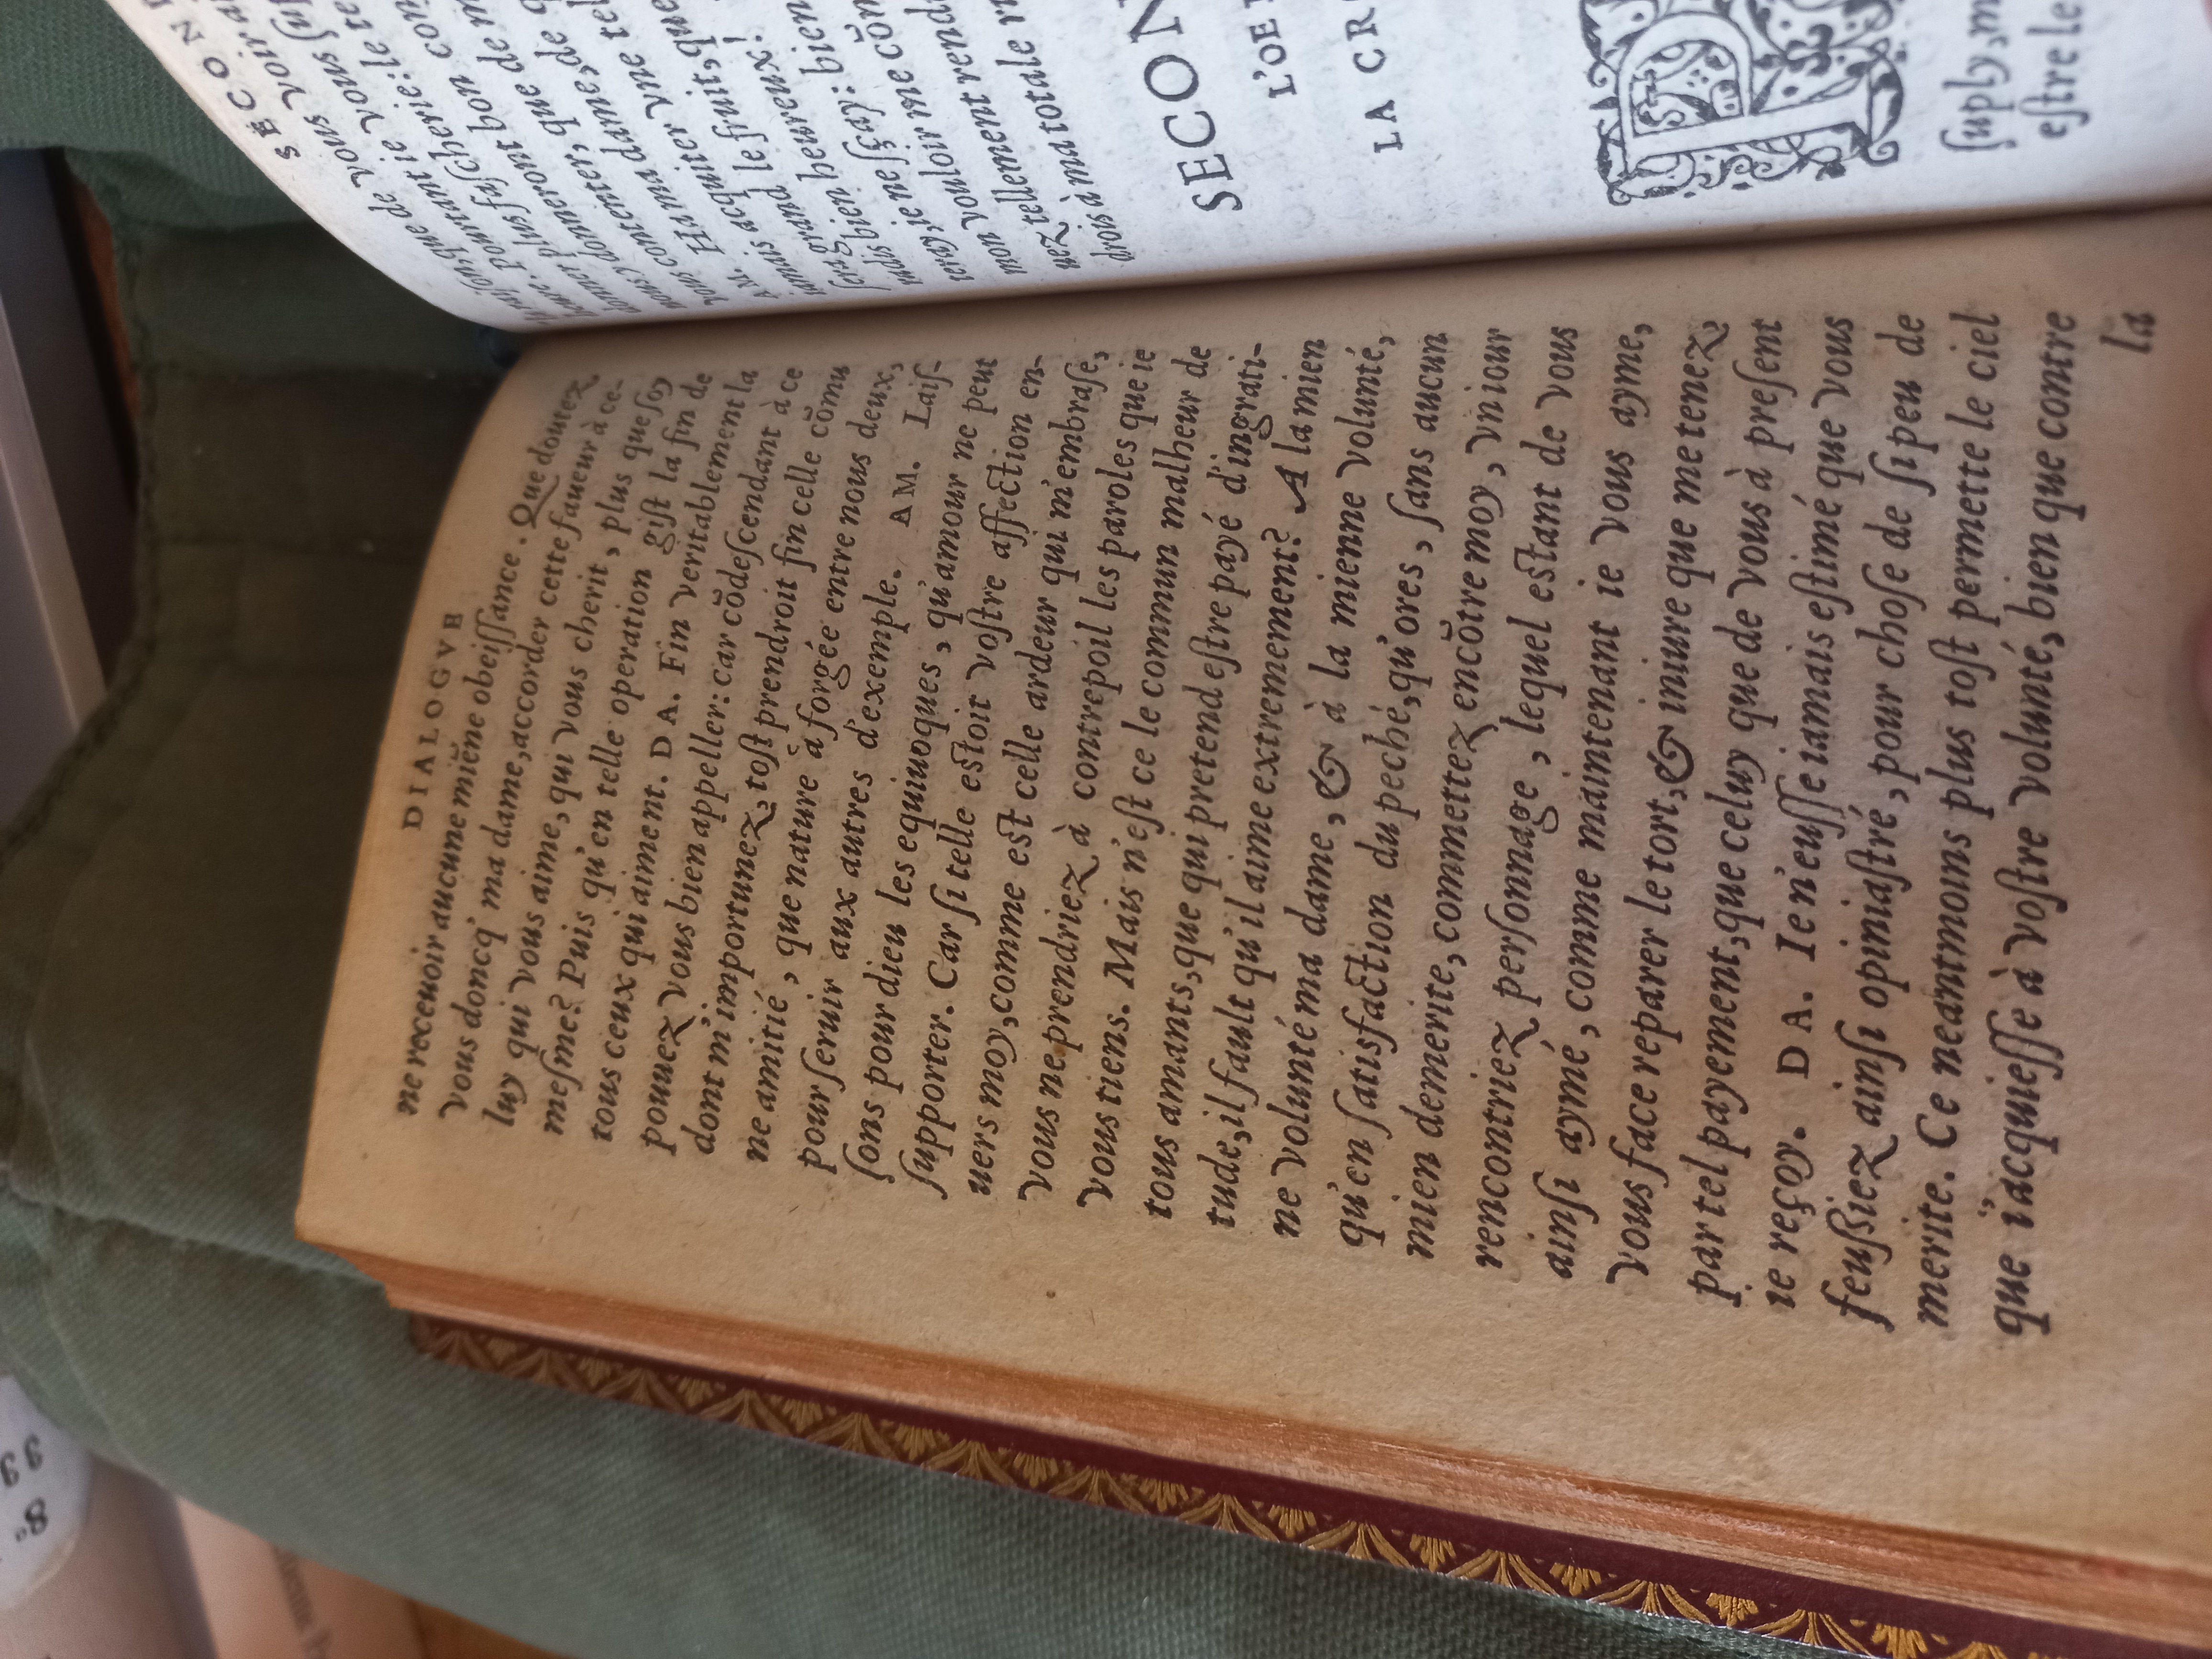 DIALOGVE
ne receuoir aucune miẽne obeiſſance. Que douez
vous doncq' ma dame, accorder cette faueur à ce-
luy qui vous aime, qui vous cherit, plus que ſoy
meſme? Puis qu'en telle operation giſt la fin de
tous ceux qui aiment. DA. Fin veritablement la
pouuez vous bien appeller: car cõdeſcendant à ce
dont m'importunez, toſt prendroit fin celle cõmu
ne amitié, que nature à forgée entre nous deux,
pour ſeruir aux autres d'exemple. AM. Laiſ-
ſons pour dieu les equiuoques, qu'amour ne peut
ſupporter. Car ſi telle eſtoit voſtre affection en-
uers moy, comme eſt celle ardeur qui m'embraſe,
vous ne prendriez à contrepoil les paroles que ie
vous tiens. Mais n'eſt ce le commun malheur de
tous amants, que qui pretend eſtre payé d'ingrati-
tude, il fault qu'il aime extremement? A la mien
ne volunté ma dame, & à la mienne volunté,
qu'en ſatisfaction du peché, qu'ores, ſans aucun
mien demerite, commettez encõtre moy, vn iour
rencontriez perſonnage, lequel eſtant de vous
ainſi aymé, comme maintenant ie vous ayme,
vous face reparer le tort, & iniure que me tenez
par tel payement, que celuy que de vous à preſent
ie reçoy. DA. Ie n'euſſe iamais eſtimé que vous
feuſsiez ainſi opiniaſtré, pour choſe de ſi peu de
merite. Ce neantmoins plus toſt permette le ciel
que i'acquieſſe à voſtre volunté, bien que contre
la
SECON
que de vous
Pourtant ie vous
plus fuſcherie: le
donneront bon
contenter, que de
ma dame, de
Hanter vne tel
AM.
iamais acquis le fruit, que
grand heureux!
bien ſçay: bien
bien ie ne
ie me
mon vouloir
tellement rend
drois à ma totale
SECON
L'OE
LA CR
ſuply, m
eſtre le